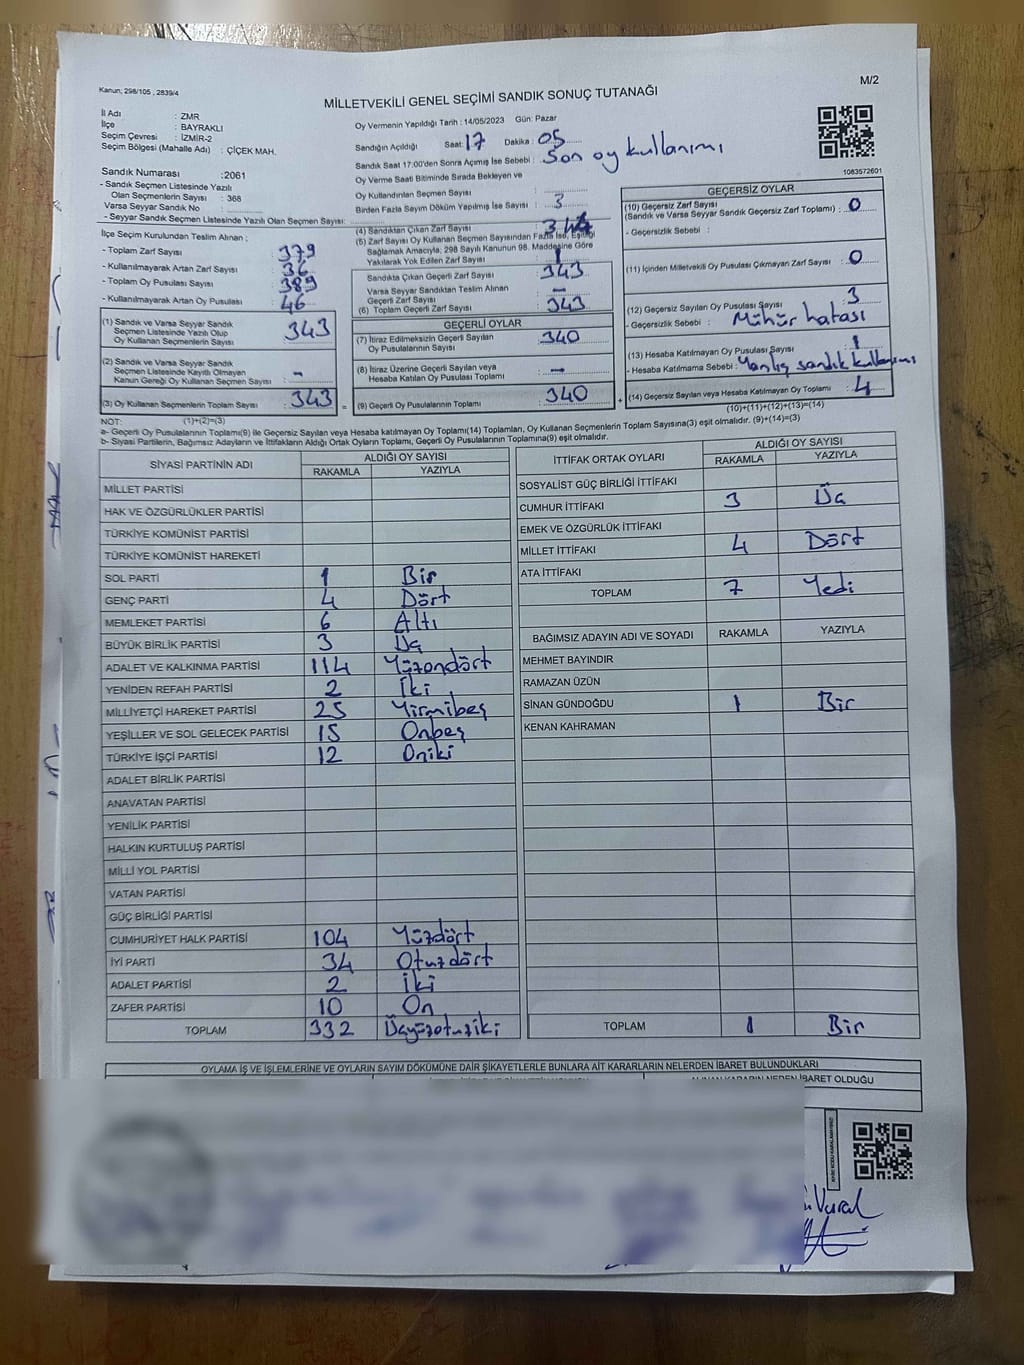 M/2
Kanun; 298/105 , 2839/4
MİLLETVEKİLİ GENEL SEÇİMİ SANDIK SONUÇ TUTANAĞI
İl Adı : ZMR
İlçe : BAYRAKLI
Seçim Çevresi : İZMİR-2
Seçim Bölgesi (Mahalle Adı) : ÇİÇEK MAH.
Sandık Numarası :2061
- Sandık Seçmen Listesinde Yazılı
Olan Seçmenlerin Sayısı : 368
Varsa Seyyar Sandık No :
- Seyyar Sandık Seçmen Listesinde Yazılı Olan Seçmen Sayısı:
İlçe Seçim Kurulundan Teslim Alınan ;
- Toplam Zarf Sayısı 379
- Kullanılmayarak Artan Zarf Sayısı 36
- Toplam Oy Pusulası Sayısı 389
- Kullanılmayarak Artan Oy Pusulası 46
(1) Sandık ve Varsa Seyyar Sandık
Seçmen Listesinde Yazılı Olup
Oy Kullanan Seçmenlerin Sayısı 343
(2) Sandık ve Varsa Seyyar Sandık
Seçmen Listesinde Kayıtlı Olmayan
Kanun Gereği Oy Kullanan Seçmen Sayısı : -
(3) Oy Kullanan Seçmenlerin Toplam Sayısı : 343 =
Oy Vermenin Yapıldığı Tarih : 14/05/2023 Gün: Pazar
Sandığın Açıldığı Saat: 17 Dakika : 05
Sandık Saat 17:00'den Sonra Açılmış İse Sebebi : Son oy kullanımı
Oy Verme Saati Bitiminde Sırada Bekleyen ve
Oy Kullandırılan Seçmen Sayısı :
Birden Fazla Sayım Döküm Yapılmış İse Sayısı : 3
(4) Sandıktan Çıkan Zarf Sayısı
(5) Zarf Sayısı Oy Kullanan Seçmen Sayısından Fazla İse, Eşitliği
Sağlamak Amacıyla, 298 Sayılı Kanunun 98. Maddesine Göre
Yakılarak Yok Edilen Zarf Sayısı : 1
Sandıkta Çıkan Geçerli Zarf Sayısı 343
Varsa Seyyar Sandıktan Teslim Alınan
Geçerli Zarf Sayısı : -
(6) Toplam Geçerli Zarf Sayısı : 343
GEÇERLİ OYLAR
(7) İtiraz Edilmeksizin Geçerli Sayılan
Oy Pusulalarının Sayısı : 340
(8) İtiraz Üzerine Geçerli Sayılan veya
Hesaba Katılan Oy Pusulası Toplamı : -
(9) Geçerli Oy Pusulalarının Toplamı : 340 +
1083572601
GEÇERSİZ OYLAR
(10) Geçersiz Zarf Sayısı
(Sandık ve Varsa Seyyar Sandık Geçersiz Zarf Toplamı) : 0
- Geçersizlik Sebebi :
(11) İçinden Milletvekili Oy Pusulası Çıkmayan Zarf Sayısı : 0
(12) Geçersiz Sayılan Oy Pusulası Sayısı : 3
- Geçersizlik Sebebi : Mühür hatası
(13) Hesaba Katılmayan Oy Pusulası Sayısı : 1
- Hesaba Katılmama Sebebi : Yanlış sandık kullanımı
(14) Geçersiz Sayılan veya Hesaba Katılmayan Oy Toplamı : 4
(10)+(11)+(12)+(13)=(14)
NOT: (1)+(2)=(3)
a- Geçerli Oy Pusulalarının Toplamı(9) ile Geçersiz Sayılan veya Hesaba katılmayan Oy Toplamı(14) Toplamları, Oy Kullanan Seçmenlerin Toplam Sayısına(3) eşit olmalıdır. (9)+(14)=(3)
b- Siyasi Partilerin, Bağımsız Adayların ve İttifakların Aldığı Ortak Oyların Toplamı, Geçerli Oy Pusulalarının Toplamına(9) eşit olmalıdır.
SİYASİ PARTİNİN ADI ALDIĞI OY SAYISI
RAKAMLA YAZIYLA
MİLLET PARTİSİ
HAK VE ÖZGÜRLÜKLER PARTİSİ
TÜRKİYE KOMÜNİST PARTİSİ
TÜRKİYE KOMÜNİST HAREKETİ
SOL PARTİ 1 Bir
GENÇ PARTİ 4 Dört
MEMLEKET PARTİSİ 6 Altı
BÜYÜK BİRLİK PARTİSİ 3 Üç
ADALET VE KALKINMA PARTİSİ 114 Yüzondört
YENİDEN REFAH PARTİSİ 2 İki
MİLLİYETÇİ HAREKET PARTİSİ 25 Yirmibeş
YEŞİLLER VE SOL GELECEK PARTİSİ 15 Onbeş
TÜRKİYE İŞÇİ PARTİSİ 12 Oniki
ADALET BİRLİK PARTİSİ
ANAVATAN PARTİSİ
YENİLİK PARTİSİ
HALKIN KURTULUŞ PARTİSİ
MİLLİ YOL PARTİSİ
VATAN PARTİSİ
GÜÇ BİRLİĞİ PARTİSİ
CUMHURİYET HALK PARTİSİ 104 Yüzdört
İYİ PARTİ 34 Otuzdört
ADALET PARTİSİ 2 İki
ZAFER PARTİSİ 10 On
TOPLAM 332 Üçyüzotuziki
İTTİFAK ORTAK OYLARI ALDIĞI OY SAYISI
RAKAMLA YAZIYLA
SOSYALİST GÜÇ BİRLİĞİ İTTİFAKI
CUMHUR İTTİFAKI 3 Üç
EMEK VE ÖZGÜRLÜK İTTİFAKI
MİLLET İTTİFAKI 4 Dört
ATA İTTİFAKI
TOPLAM 7 Yedi
BAĞIMSIZ ADAYIN ADI VE SOYADI RAKAMLA YAZIYLA
MEHMET BAYINDIR
RAMAZAN ÜZÜN
SİNAN GÜNDOĞDU 1 Bir
KENAN KAHRAMAN
TOPLAM 1 Bir
OYLAMA İŞ VE İŞLEMLERİNE VE OYLARIN SAYIM DÖKÜMÜNE DAİR ŞİKAYETLERLE BUNLARA AİT KARARLARIN NELERDEN İBARET BULUNDUKLARI
NEDEN İBARET OLDUĞU
Vural